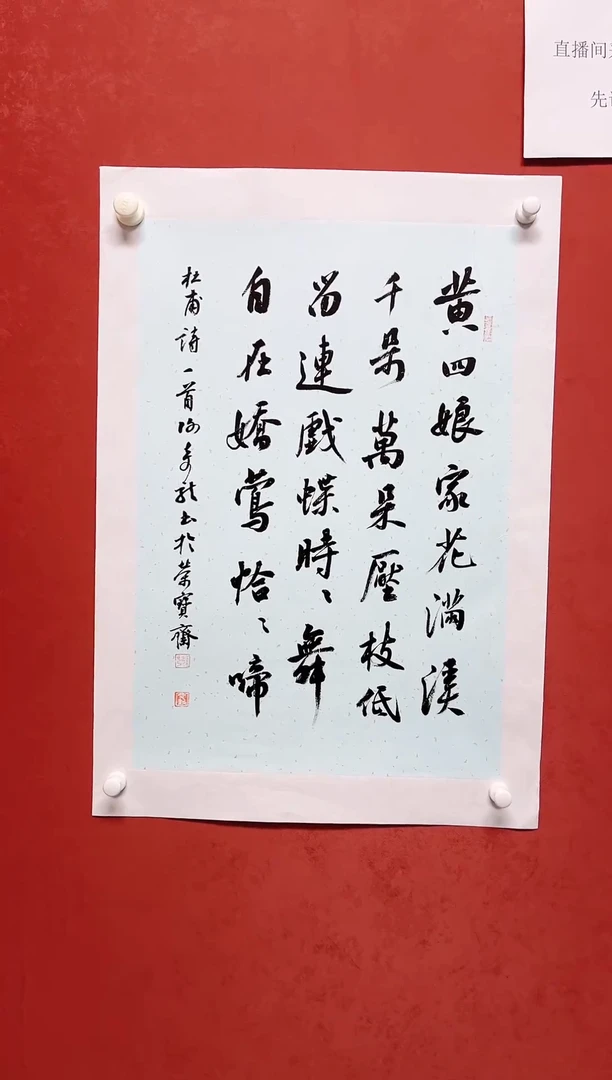 黄四娘家花滿溪
千朵萬朵壓枝低
留連戲蝶時々舞
自在嬌鶯恰々啼
杜甫詩一首 书於榮寶齋
直播间
先